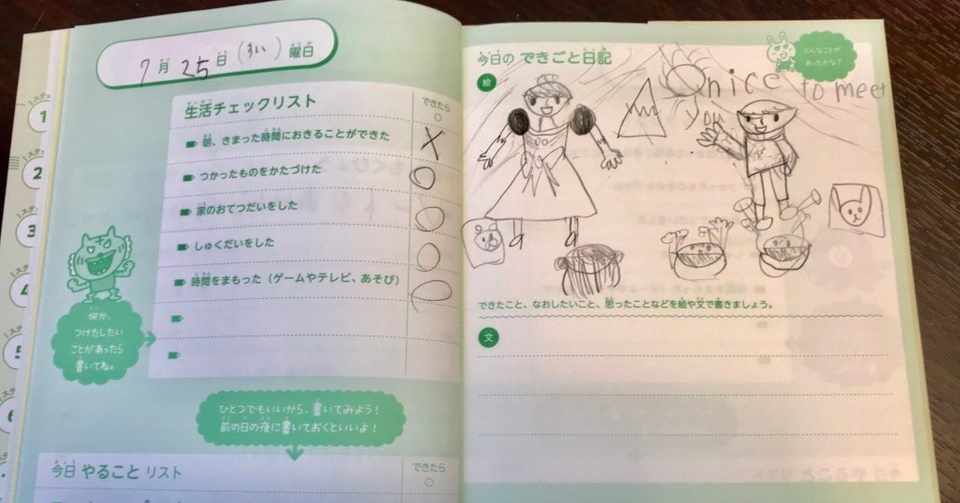 7月25日(すい)曜日
生活チェックリスト
できたら
○
朝、きまった時間におきることができた
つかったものをかたづけた
家のおてつだいをした
しゅくだいをした
時間をまもった(ゲームやテレビ、あそび)
何か、
つけたしたい
ことがあったら
書いてね。
ひとつでもいいから、書いてみよう!
前の日の夜に書いておくといいよ!
今日 やること リスト
できたら
○
1
2
3
4
5
6
今日の できごと日記
どんなことが
あったかな?
絵
nice to meet
you
できたこと、なおしたいこと、思ったことなどを絵や文で書きましょう。
文